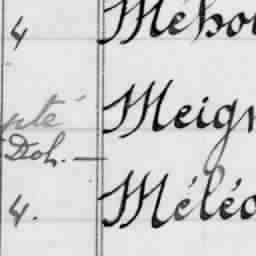 4 Méhou
pté Meign
Doh. —
4. Méléo